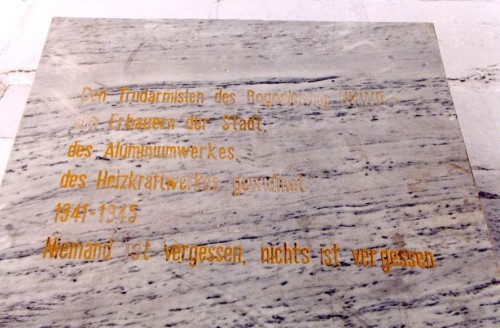 Den Trudarmisten des Bogoslowlag NKWD-
den Erbauern der Stadt,
des Aluminiumwerkes,
des Heizkraftwerkes gewidmet
1941-1945
Niemand ist vergessen, nichts ist vergessen